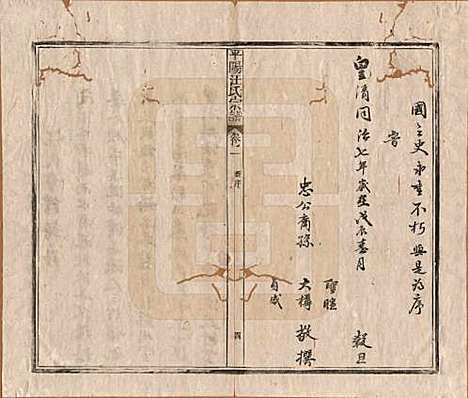 國之史永垂不朽與是為序
峕
皇清同治七年歲在戊辰春月 穀旦
忠公裔孫
聖暄
大構
自成
敬撰
平陽汪氏宗譜
卷一
新序
四